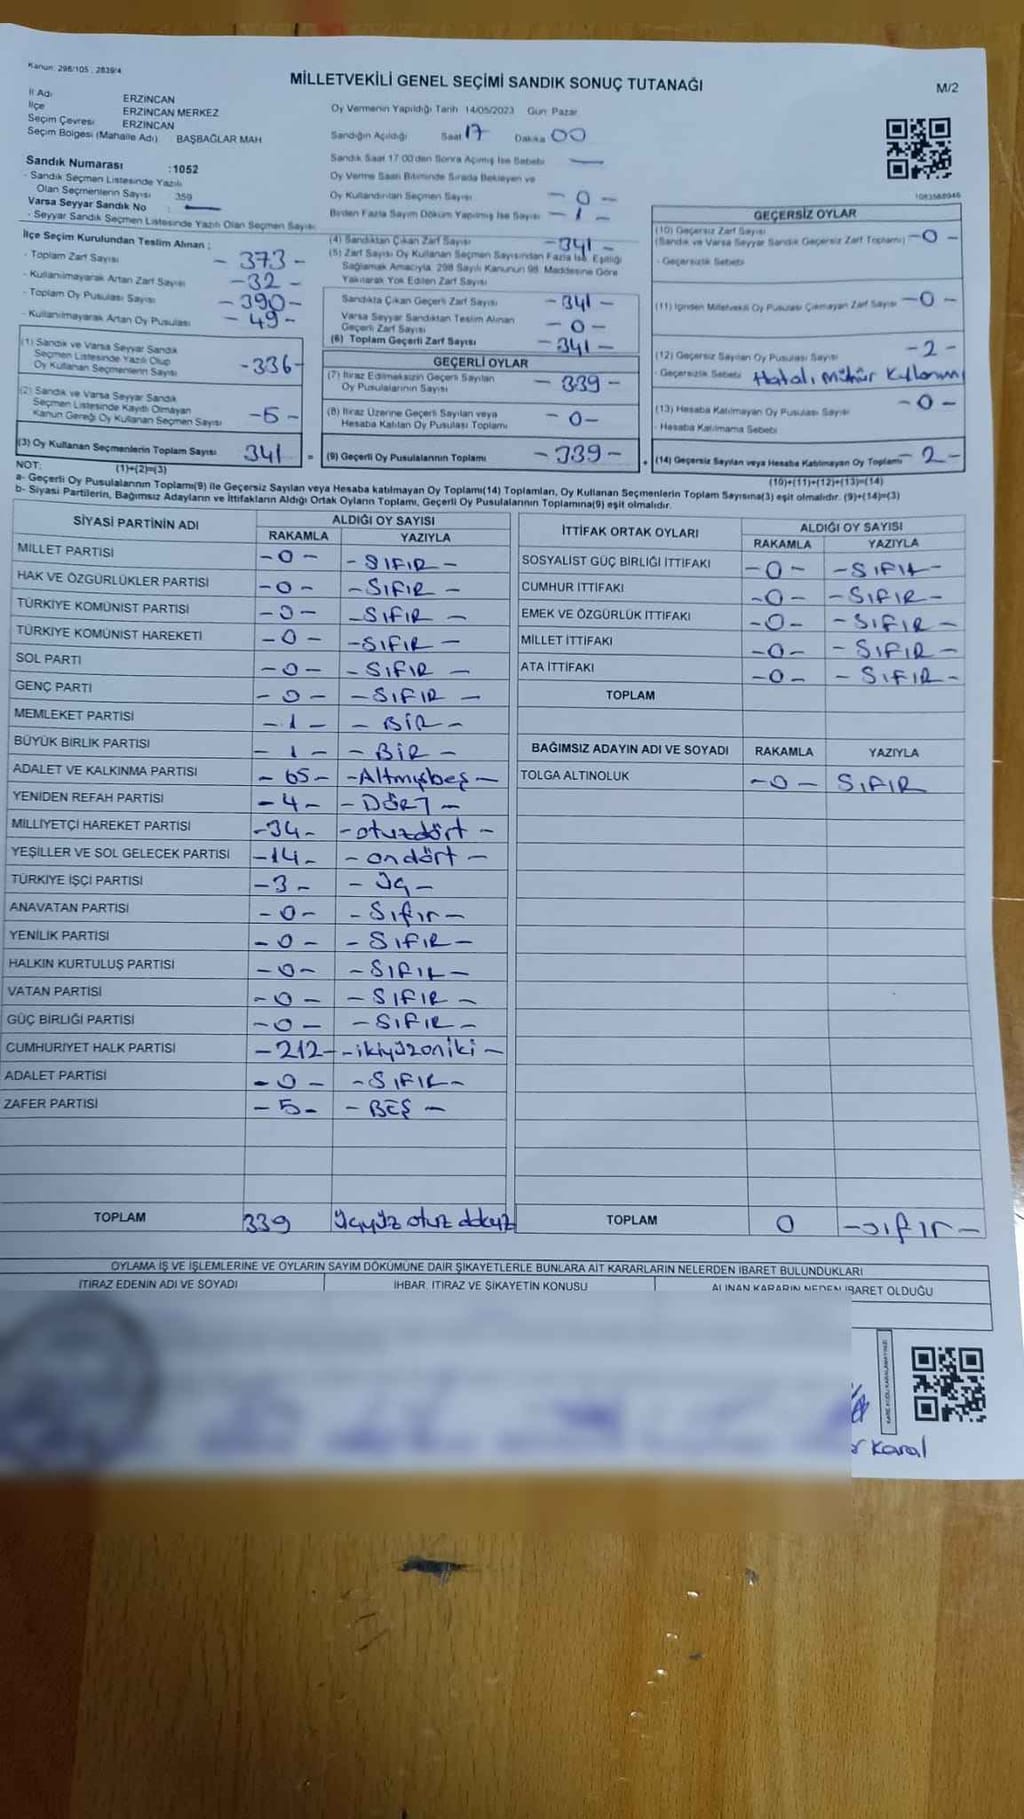 Kanun: 298/105 ; 2839/4
MİLLETVEKİLİ GENEL SEÇİMİ SANDIK SONUÇ TUTANAĞI
M/2
İl Adı ERZİNCAN
İlçe ERZİNCAN MERKEZ
Seçim Çevresi ERZİNCAN
Seçim Bölgesi (Mahalle Adı) BAŞBAĞLAR MAH
Oy Vermenin Yapıldığı Tarih 14/05/2023 Gün Pazar
Sandığın Açıldığı Saat 17 Dakika 00
Sandık Saat 17:00'den Sonra Açılmış İse Sebebi —
Oy Verme Saati Bitiminde Sırada Bekleyen ve
Oy Kullandırılan Seçmen Sayısı - 0 -
Birden Fazla Sayım Döküm Yapılmış İse Sayısı - 1 -
Sandık Numarası :1052
- Sandık Seçmen Listesinde Yazılı
Olan Seçmenlerin Sayısı 359
Varsa Seyyar Sandık No : —
- Seyyar Sandık Seçmen Listesinde Yazılı Olan Seçmen Sayısı
İlçe Seçim Kurulundan Teslim Alınan :
- Toplam Zarf Sayısı - 373 -
- Kullanılmayarak Artan Zarf Sayısı - 32 -
- Toplam Oy Pusulası Sayısı - 390 -
- Kullanılmayarak Artan Oy Pusulası - 49 -
(1) Sandık ve Varsa Seyyar Sandık
Seçmen Listesinde Yazılı Olup
Oy Kullanan Seçmenlerin Sayısı - 336 -
(2) Sandık ve Varsa Seyyar Sandık
Seçmen Listesinde Kayıtlı Olmayan
Kanun Gereği Oy Kullanan Seçmen Sayısı - 5 -
(3) Oy Kullanan Seçmenlerin Toplam Sayısı 341 =
(1)+(2)=(3)
(4) Sandıktan Çıkan Zarf Sayısı - 341 -
(5) Zarf Sayısı Oy Kullanan Seçmen Sayısından Fazla İse, Eşitliği
Sağlamak Amacıyla, 298 Sayılı Kanunun 98. Maddesine Göre
Yakılarak Yok Edilen Zarf Sayısı
Sandıkta Çıkan Geçerli Zarf Sayısı - 341 -
Varsa Seyyar Sandıktan Teslim Alınan
Geçerli Zarf Sayısı - 0 -
(6) Toplam Geçerli Zarf Sayısı - 341 -
GEÇERLİ OYLAR
(7) İtiraz Edilmeksizin Geçerli Sayılan
Oy Pusulalarının Sayısı - 339 -
(8) İtiraz Üzerine Geçerli Sayılan veya
Hesaba Katılan Oy Pusulası Toplamı - 0 -
(9) Geçerli Oy Pusulalarının Toplamı - 339 - +
1083568946
GEÇERSİZ OYLAR
(10) Geçersiz Zarf Sayısı
(Sandık ve Varsa Seyyar Sandık Geçersiz Zarf Toplamı) - 0 -
- Geçersizlik Sebebi
(11) İçinden Milletvekili Oy Pusulası Çıkmayan Zarf Sayısı - 0 -
(12) Geçersiz Sayılan Oy Pusulası Sayısı - 2 -
- Geçersizlik Sebebi Hatalı mühür kullanımı
(13) Hesaba Katılmayan Oy Pusulası Sayısı - 0 -
- Hesaba Katılmama Sebebi
(14) Geçersiz Sayılan veya Hesaba Katılmayan Oy Toplamı - 2 -
(10)+(11)+(12)+(13)=(14)
NOT:
a- Geçerli Oy Pusulalarının Toplamı(9) ile Geçersiz Sayılan veya Hesaba katılmayan Oy Toplamı(14) Toplamları, Oy Kullanan Seçmenlerin Toplam Sayısına(3) eşit olmalıdır. (9)+(14)=(3)
b- Siyasi Partilerin, Bağımsız Adayların ve İttifakların Aldığı Ortak Oyların Toplamı, Geçerli Oy Pusulalarının Toplamına(9) eşit olmalıdır.
SİYASİ PARTİNİN ADI ALDIĞI OY SAYISI
RAKAMLA YAZIYLA
MİLLET PARTİSİ - 0 - - SIFIR -
HAK VE ÖZGÜRLÜKLER PARTİSİ - 0 - - SIFIR -
TÜRKİYE KOMÜNİST PARTİSİ - 0 - - SIFIR -
TÜRKİYE KOMÜNİST HAREKETİ - 0 - - SIFIR -
SOL PARTİ - 0 - - SIFIR -
GENÇ PARTİ - 0 - - SIFIR -
MEMLEKET PARTİSİ - 1 - - BİR -
BÜYÜK BİRLİK PARTİSİ - 1 - - BİR -
ADALET VE KALKINMA PARTİSİ - 65 - - Altmışbeş -
YENİDEN REFAH PARTİSİ - 4 - - DÖRT -
MİLLİYETÇİ HAREKET PARTİSİ - 34 - - otuzdört -
YEŞİLLER VE SOL GELECEK PARTİSİ - 14 - - ondört -
TÜRKİYE İŞÇİ PARTİSİ - 3 - - üç -
ANAVATAN PARTİSİ - 0 - - Sıfır -
YENİLİK PARTİSİ - 0 - - SIFIR -
HALKIN KURTULUŞ PARTİSİ - 0 - - SIFIR -
VATAN PARTİSİ - 0 - - SIFIR -
GÜÇ BİRLİĞİ PARTİSİ - 0 - - SIFIR -
CUMHURİYET HALK PARTİSİ - 212 - - ikiyüzoniki -
ADALET PARTİSİ - 0 - - SIFIR -
ZAFER PARTİSİ - 5 - - BEŞ -
TOPLAM 339 üçyüz otuz dokuz
İTTİFAK ORTAK OYLARI ALDIĞI OY SAYISI
RAKAMLA YAZIYLA
SOSYALİST GÜÇ BİRLİĞİ İTTİFAKI - 0 - - SIFIR -
CUMHUR İTTİFAKI - 0 - - SIFIR -
EMEK VE ÖZGÜRLÜK İTTİFAKI - 0 - - SIFIR -
MİLLET İTTİFAKI - 0 - - SIFIR -
ATA İTTİFAKI - 0 - - SIFIR -
TOPLAM
BAĞIMSIZ ADAYIN ADI VE SOYADI RAKAMLA YAZIYLA
TOLGA ALTINOLUK - 0 - SIFIR
TOPLAM 0 - sıfır -
OYLAMA İŞ VE İŞLEMLERİNE VE OYLARIN SAYIM DÖKÜMÜNE DAİR ŞİKAYETLERLE BUNLARA AİT KARARLARIN NELERDEN İBARET BULUNDUKLARI
İTİRAZ EDENİN ADI VE SOYADI İHBAR, İTİRAZ VE ŞİKAYETİN KONUSU ALINAN KARARIN NEDEN İBARET OLDUĞU
KARE KODU KARALAMAYINIZ
Karal